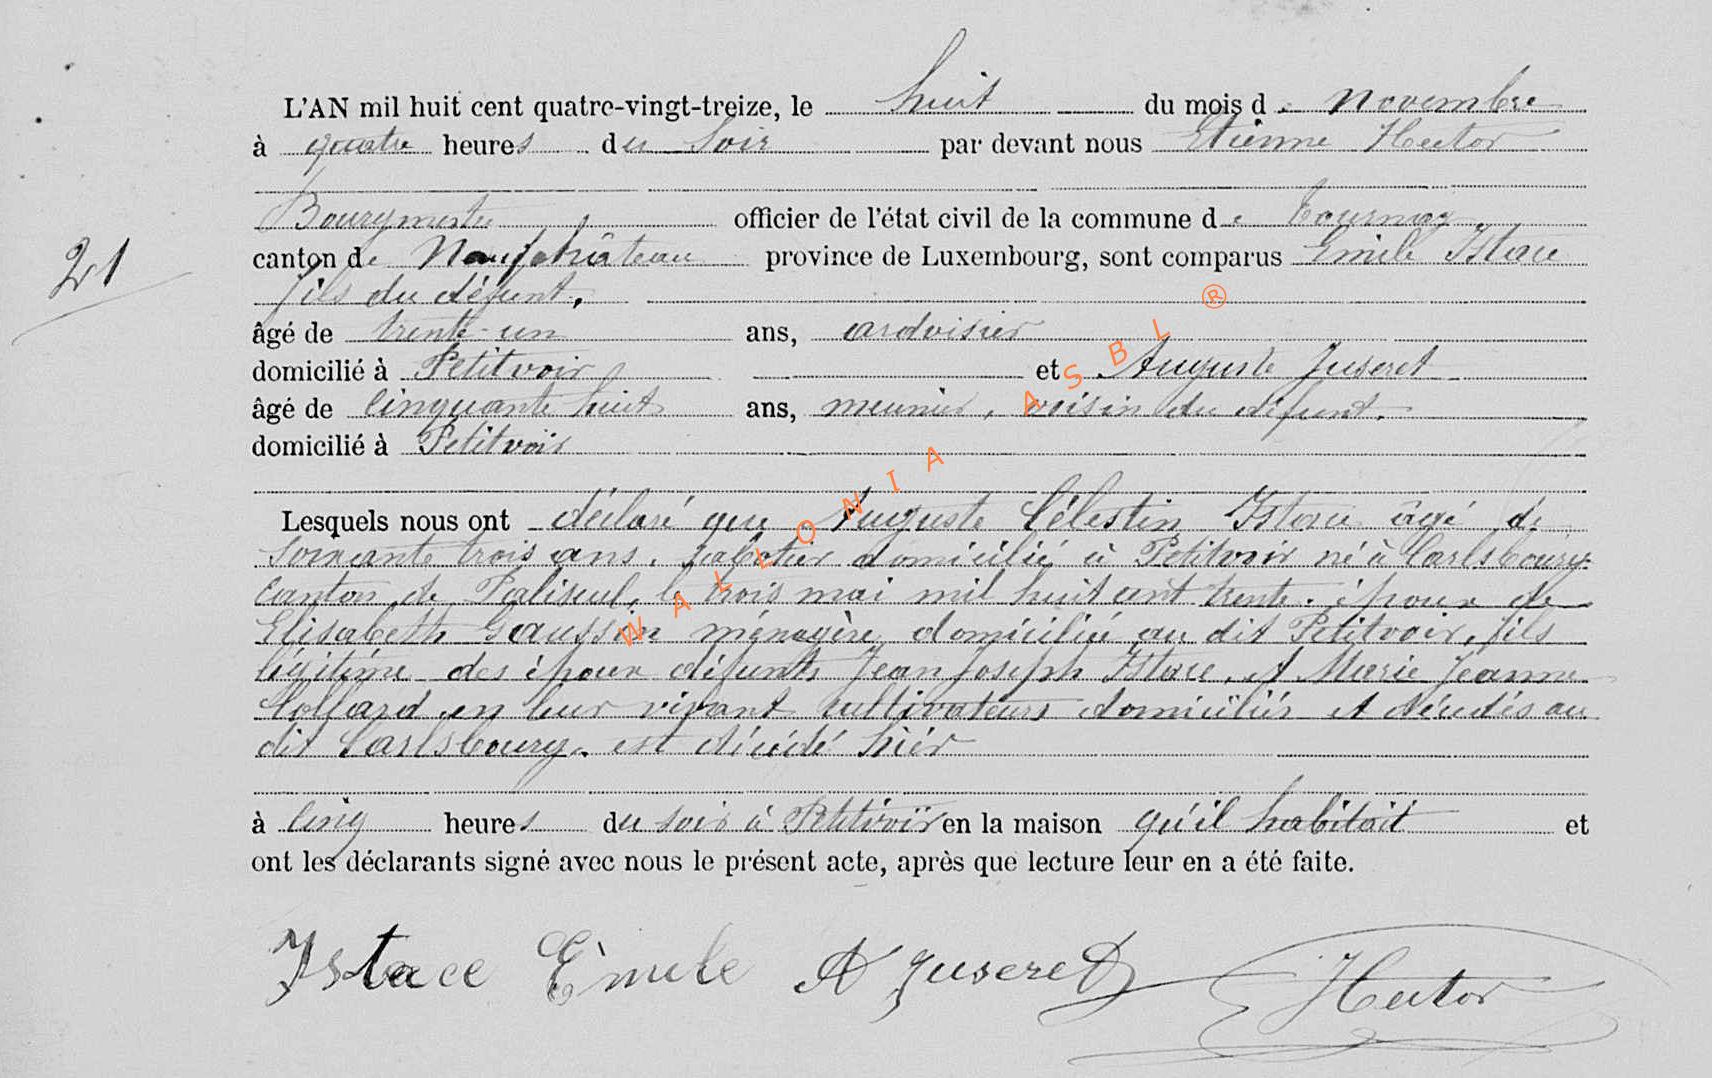 L'AN mil huit cent quatre-vingt-treize, le huit du mois de Novembre
à quatre heures du Soir par devant nous Etienne Hector
Bourgmestre officier de l'état civil de la commune de Tournay
21
canton de Neufchâteau province de Luxembourg, sont comparus Emile Istace
fils du défunt,
âgé de trente-un ans, ardoisier
domicilié à Petitvoir et Auguste Juseret
âgé de cinquante huit ans, meunier, voisin du défunt.
domicilié à Petitvoir
Lesquels nous ont déclaré que Auguste Célestin Istace âgé de
soixante trois ans, sabotier domicilié à Petitvoir né à Carlsbourg
canton de Paliseul, le trois mai mil huit cent trente. époux de
Elisabeth ménagère domiciliée au dit Petitvoir, fils
légitime des époux défunts Jean Joseph Istace, et Marie Jeanne
Collard en leur vivant cultivateurs domiciliés et décédés au
dit Carlsbourg. est décédé hier
à cinq heures du soir à Petitvoir en la maison qu'il habitait et
ont les déclarants signé avec nous le présent acte, après que lecture leur en a été faite.
Istace Emile A Juseret Hector
WALLONIA ASBL ®